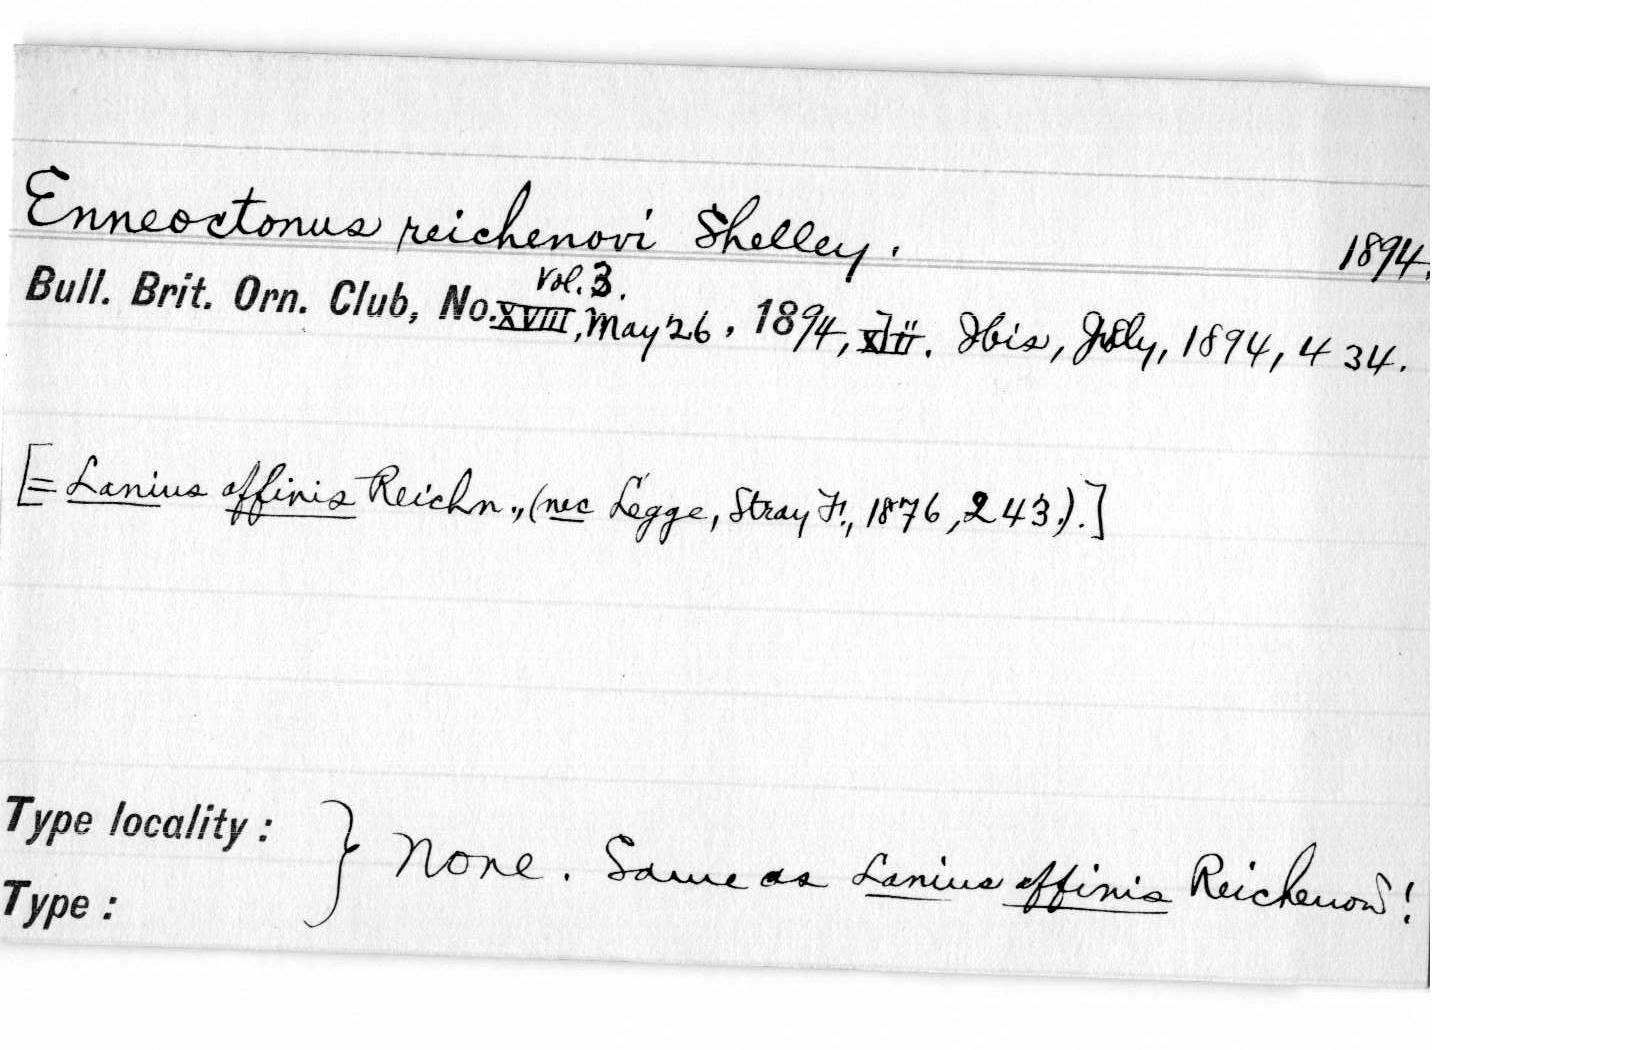 Enneoctonus reichenovi Shelley. 1894.
Vol. 3.
Bull. Brit. Orn. Club, No. XVIII, May 26, 1894, xlii. Ibis, July, 1894, 434.
[= Lanius affinis Reichn., (nec Legge, Stray F., 1876, 243.).]
Type locality :
Type :
} None. Same as Lanius affinis Reichenow!